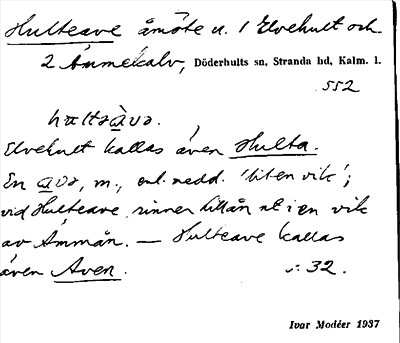 Hulteave åmöte u. 1 Elvehult och
2 Åmmekalv, Döderhults sn, Stranda hd, Kalm. l.
552
hɷltəàvə.
Elvehult kallas även Hulta.
En avə, m., enl. medd. 'liten vik';
vid Hulteave rinner tillån ut i en vik
av Åmmån. — Hulteave kallas
även Aven. s. 32.
Ivar Modéer 1937